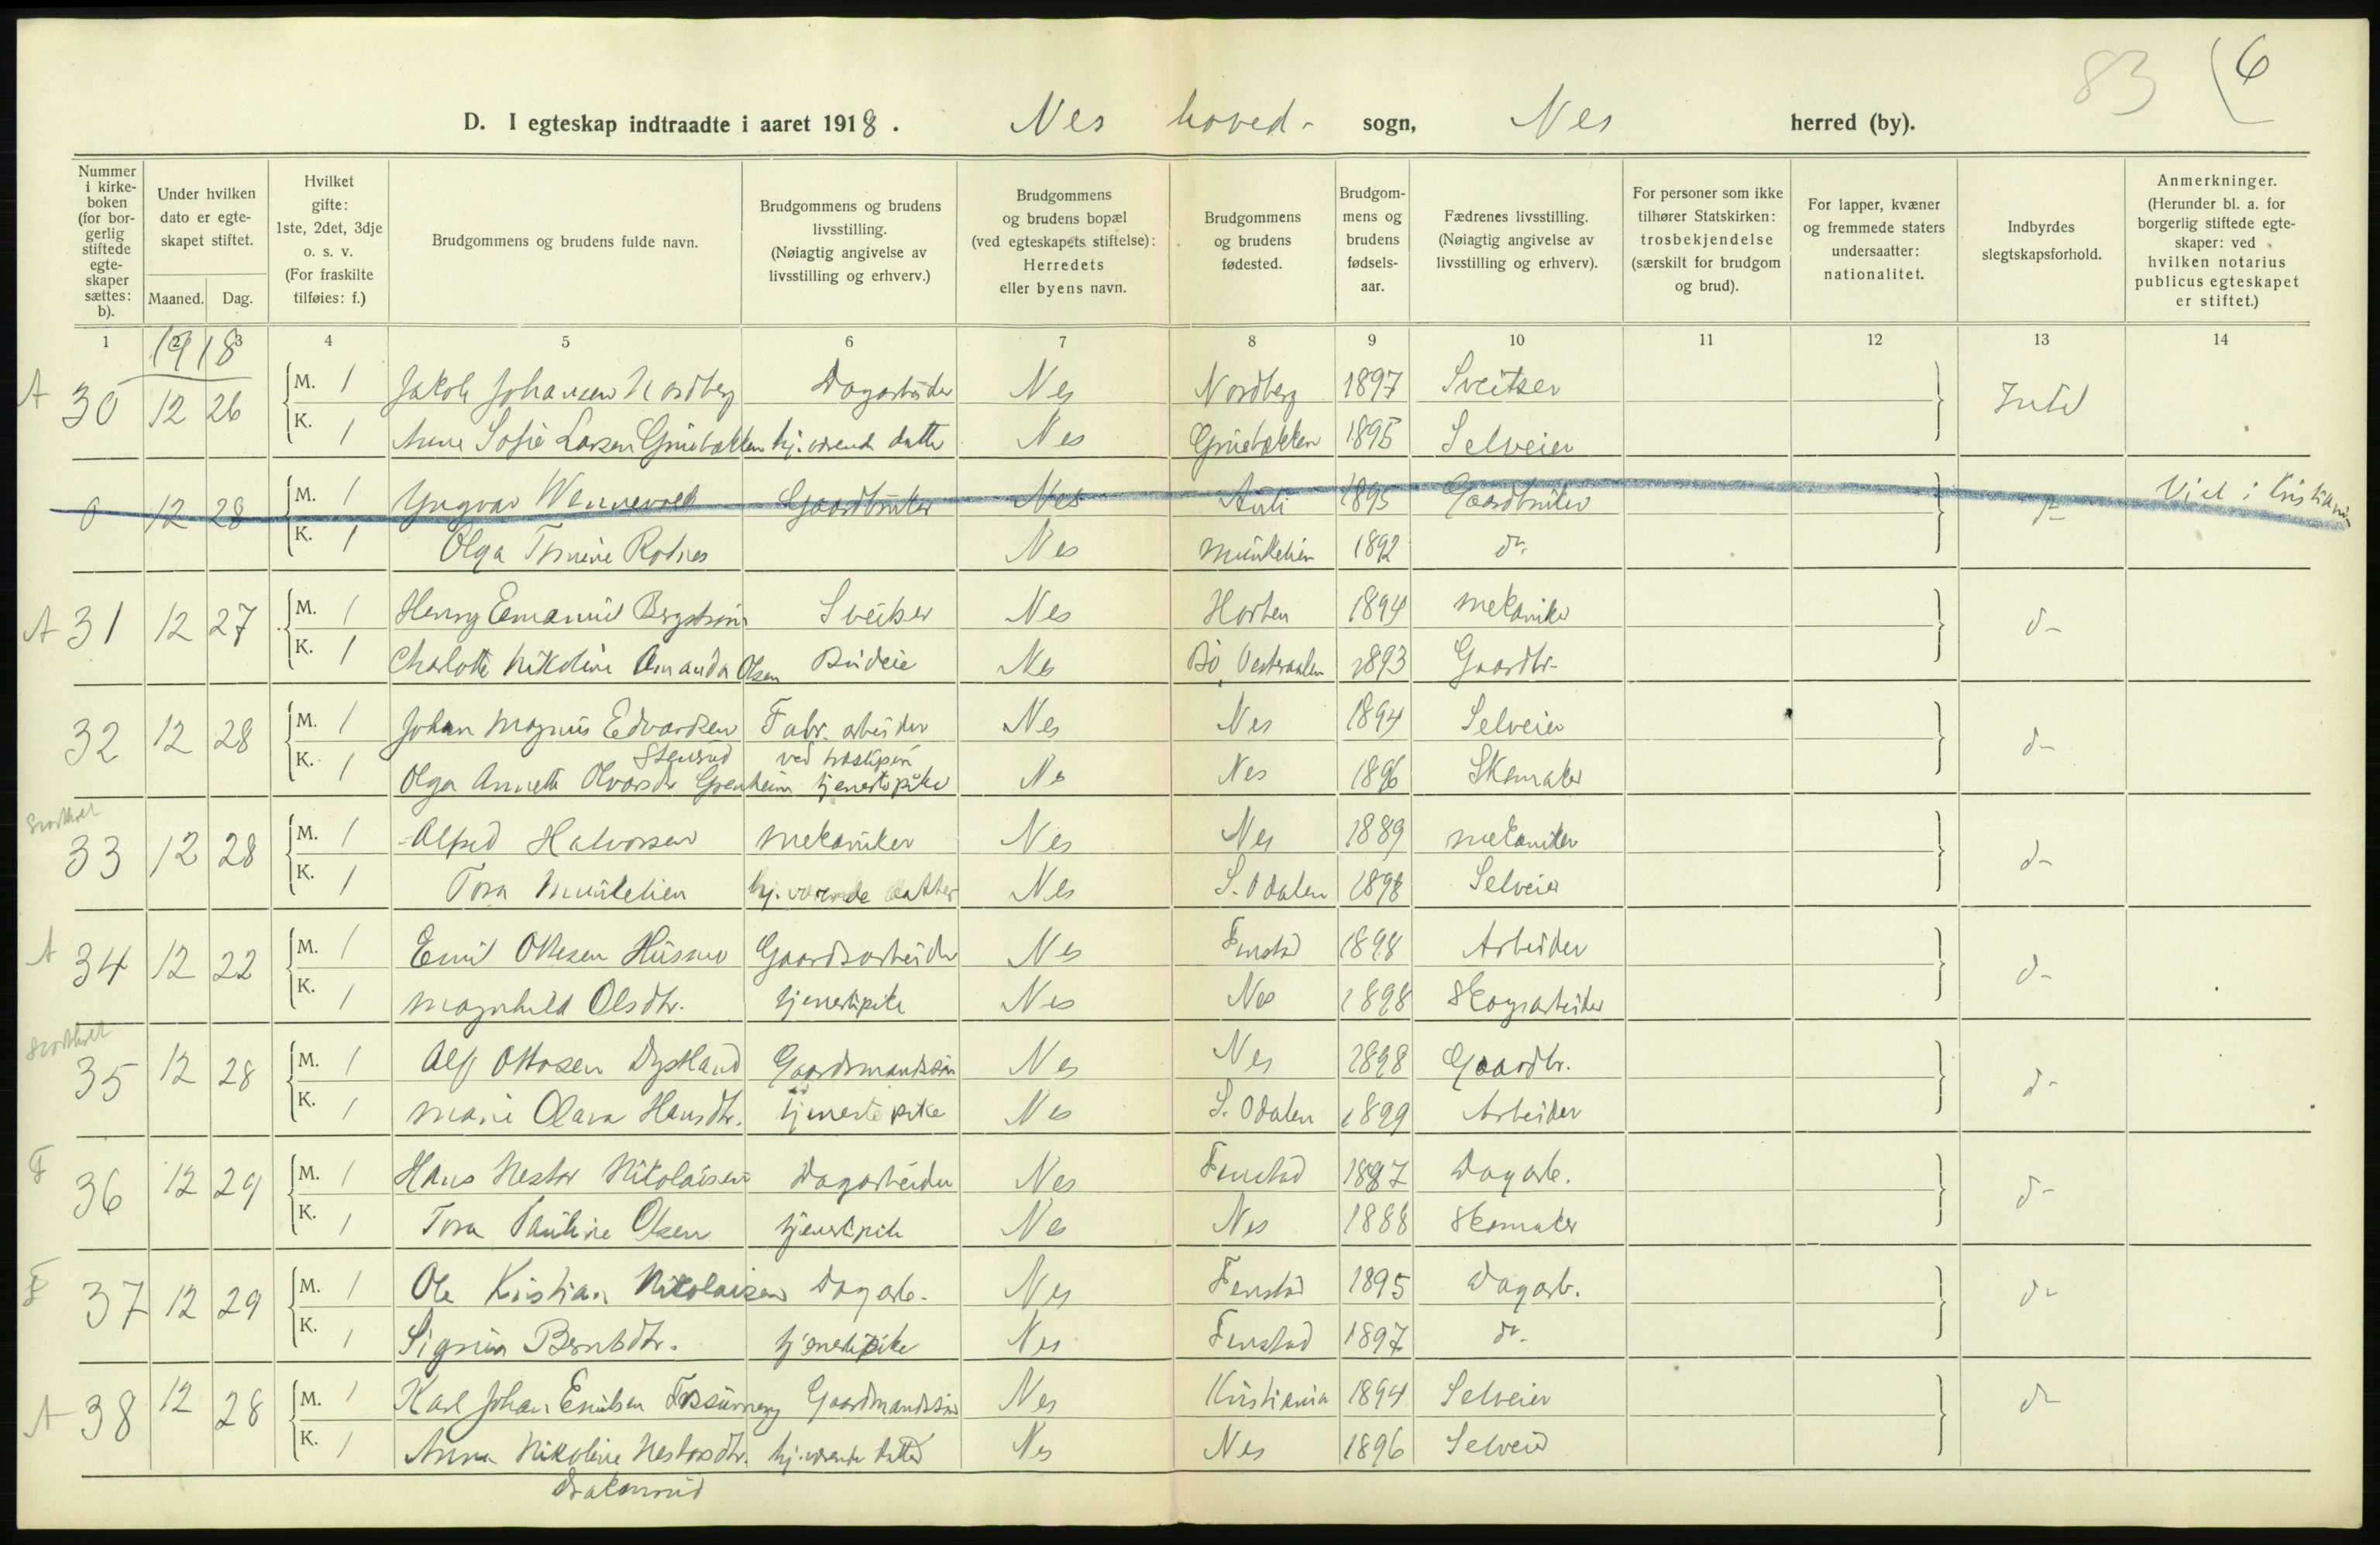 83 6
D. I egteskap indtraadte i aaret 1918. Nes hoved- sogn, Nes herred (by).
Nummer i kirkeboken (for borgerlig stiftede egteskaper sættes: b).
Under hvilken dato er egteskapet stiftet.
Maaned. Dag.
Hvilket gifte: 1ste, 2det, 3dje o. s. v. (For fraskilte tilføies: f.)
Brudgommens og brudens fulde navn.
Brudgommens og brudens livsstilling. (Nøiagtig angivelse av livsstilling og erhverv.)
Brudgommens og brudens bopæl (ved egteskapets stiftelse): Herredets eller byens navn.
Brudgommens og brudens fødested.
Brudgommens og brudens fødselsaar.
Fædrenes livsstilling. (Nøiagtig angivelse av livsstilling og erhverv).
For personer som ikke tilhører Statskirken: trosbekjendelse (særskilt for brudgom og brud).
For lapper, kvæner og fremmede staters undersaatter: nationalitet.
Indbyrdes slegtskapsforhold.
Anmerkninger. (Herunder bl. a. for borgerlig stiftede egteskaper: ved hvilken notarius publicus egteskapet er stiftet.)
1 2 3 4 5 6 7 8 9 10 11 12 13 14
1918
A 30 12 26 M. 1 Jakob Johansen Nordberg Dagarbeider Nes Nordberg 1897 Sveitser Intet
K. 1 Anna Sofie Larsen Grinebakken hj. værende datter Nes Grinebakken 1895 Selveier
0 12 28 M. 1 Yngvar Wennevold Gaardbruker Nes Auli 1895 Gaardbruker d- Viet i Kristiania
K. 1 Olga Tomine Rotnes Nes Munkelien 1892 do.
A 31 12 27 M. 1 Henry Emanuel Bergstrøm Sveitser Nes Horten 1894 mekaniker d-
K. 1 Charlotte Nikoline Amanda Olsen Budeie Nes Bø, Vesteraalen 1893 Gaardbr.
32 12 28 M. 1 Johan Magnus Edvardsen Stensrud Fabr. arbeider ved træsliperi Nes Nes 1894 Selveier d-
K. 1 Olga Annette Olvarsdr Grenheim tjenestepike Nes Nes 1896 Skomaker
33 12 28 M. 1 Alfred Halvorsen mekaniker Nes Nes 1889 mekaniker d-
K. 1 Tora Munkelien hj. værende datter Nes S. Odalen 1898 Selveier
A 34 12 22 M. 1 Emil Ottesen Husmo Gaardsarbeider Nes Fenstad 1898 Arbeider d-
K. 1 Magnhild Olsdtr. tjenestepike Nes Nes 1898 Skogsarbeider
35 12 28 M. 1 Alf Ottosen Dystland Gaardmandssøn Nes Nes 1898 Gaardbr. d-
K. 1 Marie Olava Hansdtr. tjenestepike Nes S. Odalen 1899 Arbeider
F 36 12 29 M. 1 Hans Nestor Nikolaisen Dagarbeider Nes Fenstad 1887 Dagarb. d-
K. 1 Tora Pauline Olsen tjenestpike Nes Nes 1888 Skomaker
F 37 12 29 M. 1 Ole Kristian Nikolaisen Dagarb. Nes Fenstad 1895 Dagarb. d-
K. 1 Signia Berntsdtr. tjenestepike Nes Fenstad 1897 do.
A 38 12 28 M. 1 Karl Johan Emilsen Gaardmandssøn Nes Kristiania 1894 Selveier d-
K. 1 Anna Nikoline Nestorsdtr. hj. værende datter Nes Nes 1896 Selveier